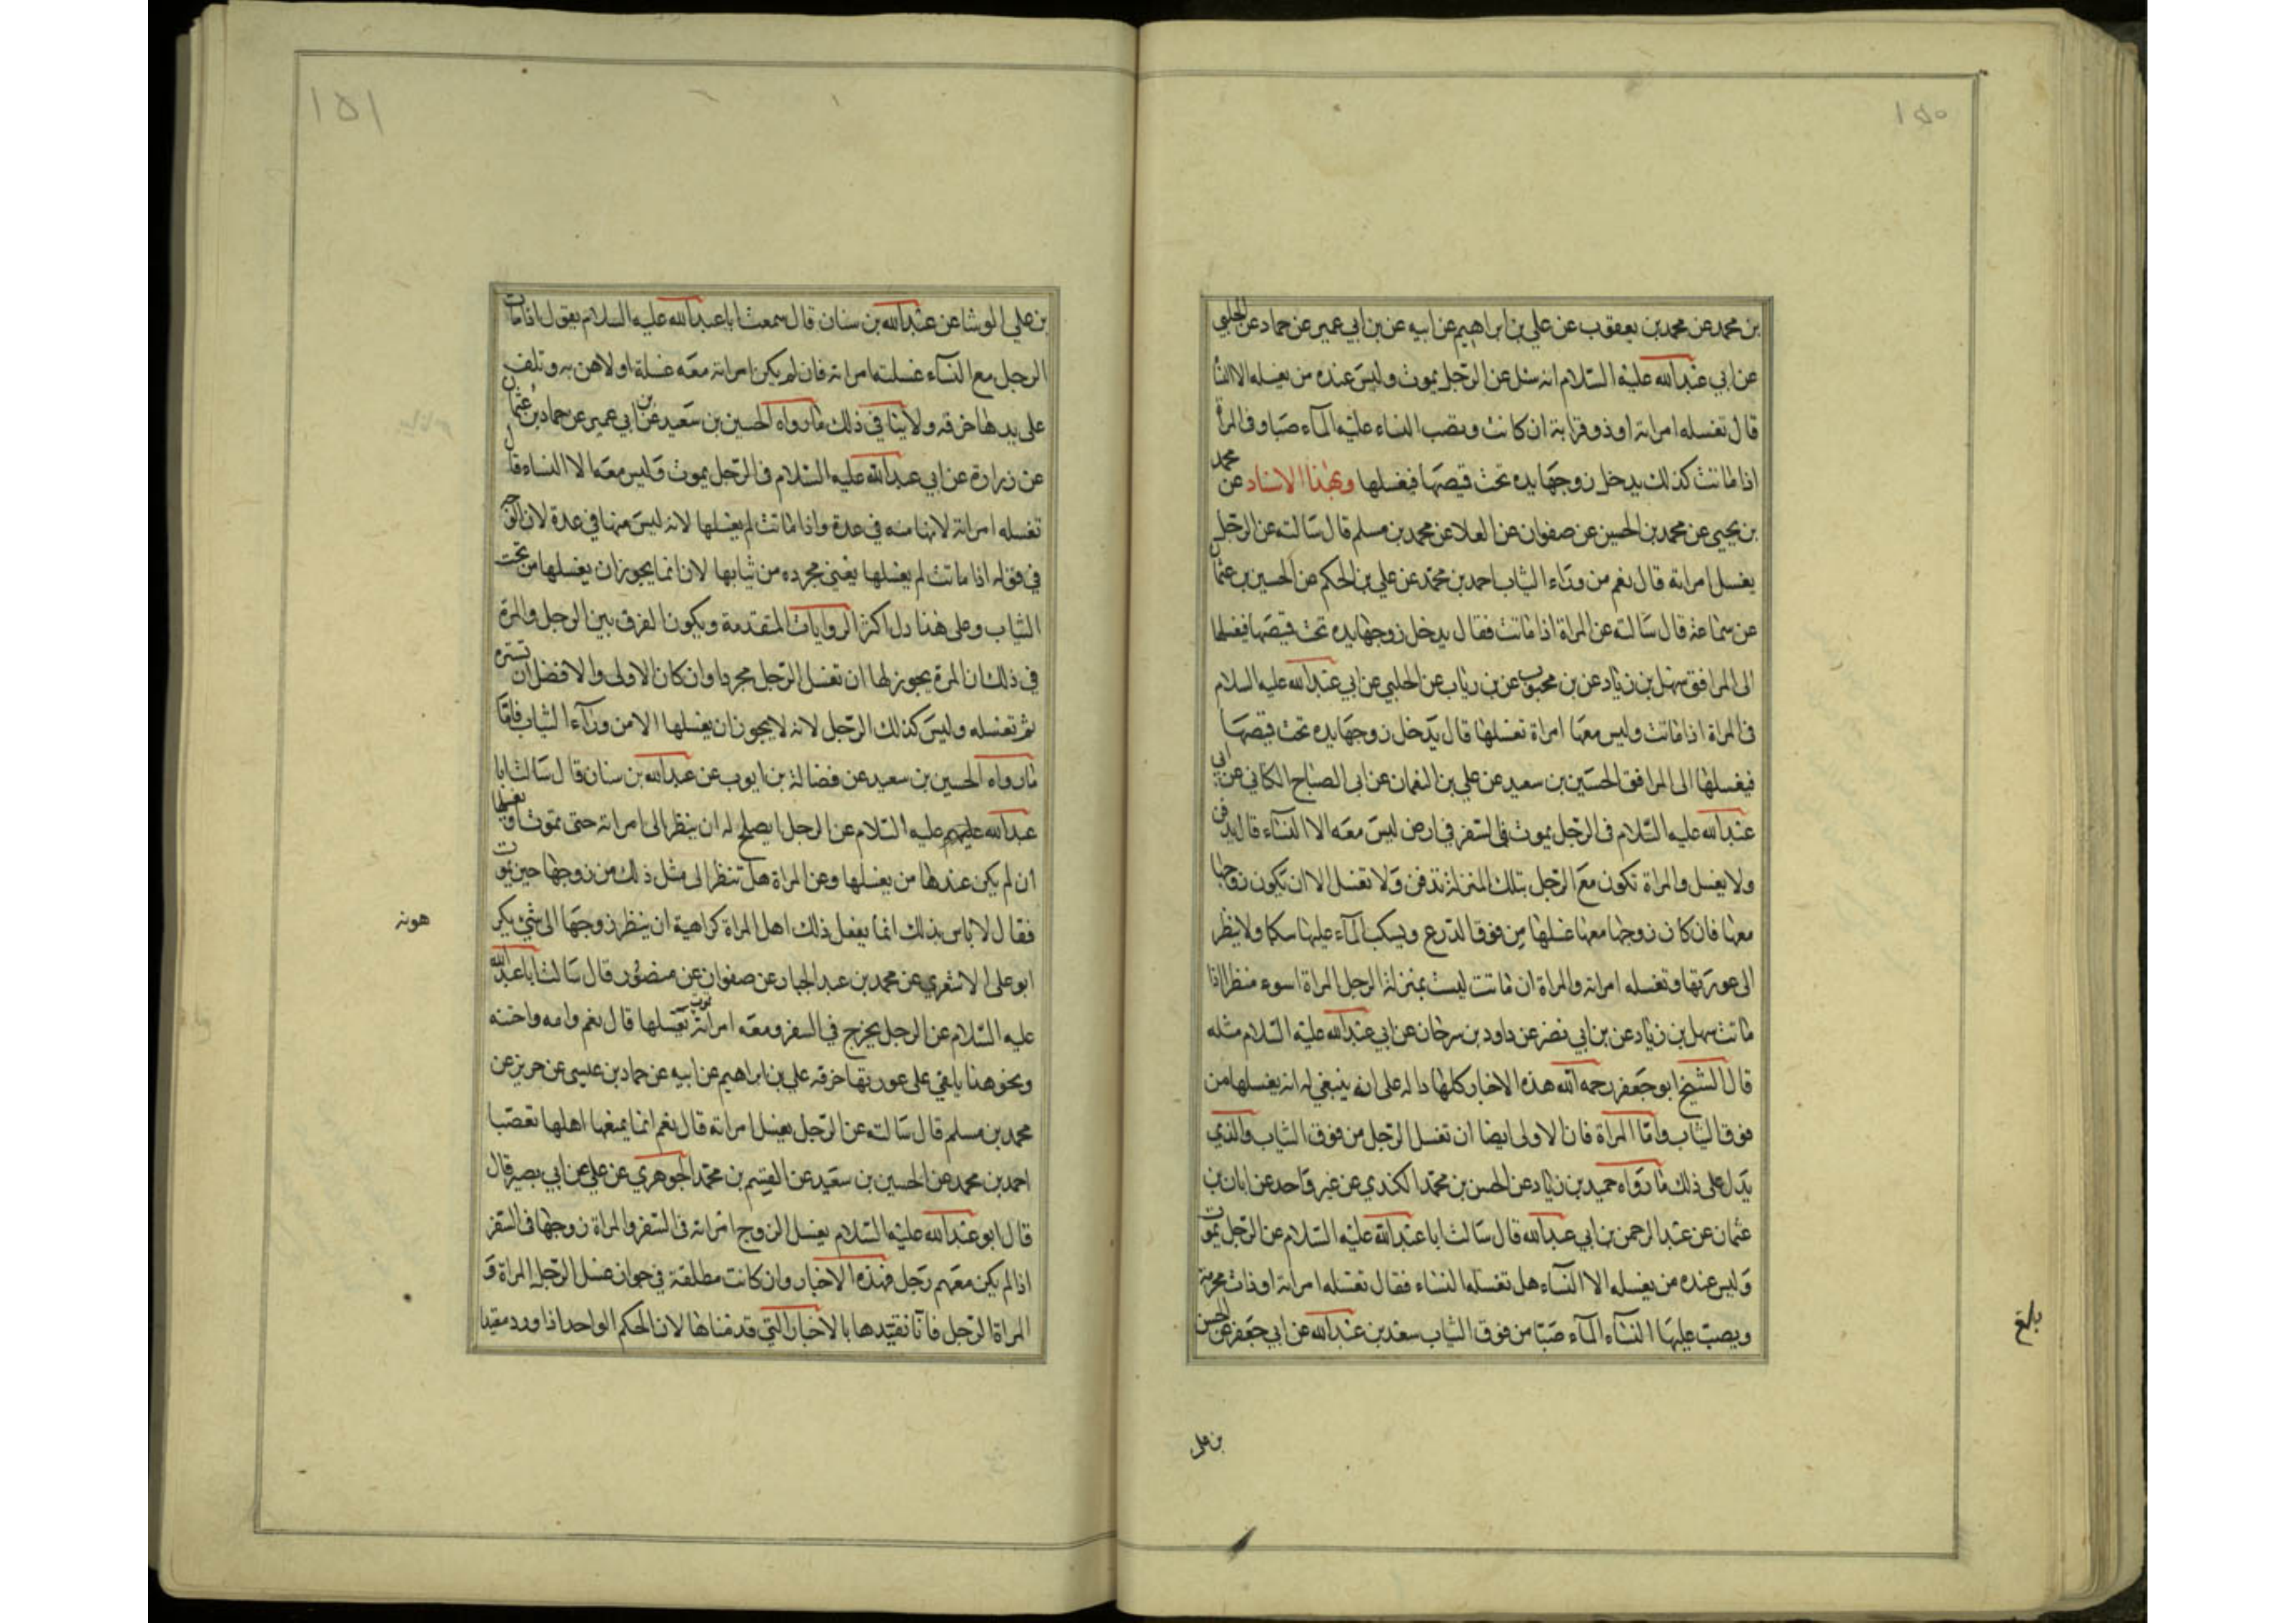 ١٥٠
بن محمد عن محمد بن يعقوب عن علي بن ابراهيم عن ابيه عن بن ابي عمير عن حماد عن الحلبي
عن ابي عبدالله عليه السلام انه سئل عن الرجل يموت وليس عنده من يغسله الا النساء
قال تغسله امراته او ذو قرابة ان كانت ويصب النساء عليه الماء صبا وفي المراة
اذا ماتت كذلك يدخل زوجها يده تحت قميصها فيغسلها وبهذا الاسناد عن محمد
بن يحيى عن محمد بن الحسين عن صفوان عن العلا عن محمد بن مسلم قال سالته عن الرجل
يغسل امراته قال نعم من وراء الثياب احمد بن محمد عن علي بن الحكم عن الحسين بن عثمان
عن سماعة قال سالته عن المراة اذا ماتت فقال يدخل زوجها يده تحت قميصها فيغسلها
الى المرافق سهل بن زياد عن بن محبوب عن بن رياب عن الحلبي عن ابي عبدالله عليه السلام
في المراة اذا ماتت وليس معها امراة تغسلها قال يدخل زوجها يده تحت قميصها
فيغسلها الى المرافق الحسين بن سعيد عن علي بن النعمان عن ابي الصباح الكناني عن ابي
عبدالله عليه السلام في الرجل يموت في السفر في ارض ليس معه الا النساء قال يدفن
ولا يغسل والمراة تكون مع الرجل بتلك المنزلة تدفن ولا تغسل الا ان يكون زوجها
معها فان كان زوجها معها غسلها من فوق الدرع ويسكب الماء عليها سكبا ولا ينظر
الى عورتها وتغسله امراته والمراة ان ماتت ليست بمنزلة الرجل المراة اسوء منظرا اذا
ماتت سهل بن زياد عن بن ابي نصر عن داود بن سرحان عن ابي عبدالله عليه السلام مثله
قال الشيخ ابو جعفر رحمه الله هذه الاخبار كلها دالة على انه ينبغي له انه يغسلها من
فوق الثياب واما المراة فان الاولى ايضا ان تغسل الرجل من فوق الثياب والذي
يدل على ذلك ما رواه حميد بن زياد عن الحسن بن محمد الكندي عن غير واحد عن ابان بن
عثمان عن عبد الرحمن بن ابي عبدالله قال سالت ابا عبدالله عليه السلام عن الرجل يموت
وليس عنده من يغسله الا النساء هل تغسله النساء فقال تغسله امراته او ذات محرمة
ويصب عليها النساء الماء صبا من فوق الثياب سعد بن عبدالله عن ابي جعفر عن الحسن
بن علي
بلغ
١٥١
بن علي الوشا عن عبدالله بن سنان قال سمعت ابا عبدالله عليه السلام يقول اذا مات
الرجل مع النساء غسلته امراته فان لم يكن امراته معه غسلته اولاهن به وتلف
على يدها خرقة ولا ينافي ذلك ما رواه الحسين بن سعيد عن بن ابي عمير عن حماد بن عثمان
عن زرارة عن ابي عبدالله عليه السلام في الرجل يموت وليس معه الا النساء قال
تغسله امراته لانها منه في عدة واذا ماتت لم يغسلها لانه ليس منها في عدة لان الوجه
في قوله اذا ماتت لم يغسلها يعني مجرده من ثيابها لان انما يجوز ان يغسلها من تحت
الثياب وعلى هذا دل اكثر الروايات المتقدمة ويكون الفرق بين الرجل والمرة
في ذلك ان المرة يجوز لها ان تغسل الرجل مجردا وان كان الاولى والافضل ان تستره
ثم تغسله وليس كذلك الرجل لانه لا يجوز ان يغسلها الا من وراء الثياب فاما
ما رواه الحسين بن سعيد عن فضالة بن ايوب عن عبدالله بن سنان قال سالت ابا
عبدالله عليهم عليه السلام عن الرجل ايصلح له ان ينظر الى امراته حتى تموت او يغسلها
ان لم يكن عندها من يغسلها وعن المراة هل تنظر الى مثل ذلك من زوجها حين يموت
فقال لا باس بذلك انما يفعل ذلك اهل المراة كراهية ان ينظر زوجها الى شيء يكر
هونه
ابو على الاشعري عن محمد بن عبد الجبار عن صفوان عن منصور قال سالت ابا عبدالله
عليه السلام عن الرجل يخرج في السفر ومعه امراته تموت يغسلها قال نعم وامه واخته
ونحو هذا يلقي على عورتها خرقة علي بن ابراهيم عن ابيه عن حماد بن عيسى عن حريز عن
محمد بن مسلم قال سالته عن الرجل يغسل امراته قال نعم انما يمنعها اهلها تعصبا
احمد بن محمد عن الحسين بن سعيد عن القسم بن محمد الجوهري عن علي عن ابي بصير قال
قال ابو عبدالله عليه السلام يغسل الزوج امراته في السفر والمراة زوجها في السفر
اذا لم يكن معهم رجل فهذه الاخبار وان كانت مطلقة في جواز غسل الرجل المراة و
المراة الرجل فانا نقيدها بالاخبار التي قدمناها لان الحكم الواحد اذا ورد مقيدا